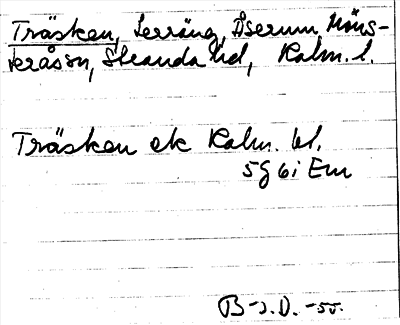 Träsken, Lerräng, Åserum Möns-
teråssn, Stranda hd, Kalm. l.
Träsken ek Kalm. bl.
5G 6i Em
B-s.D. -55.